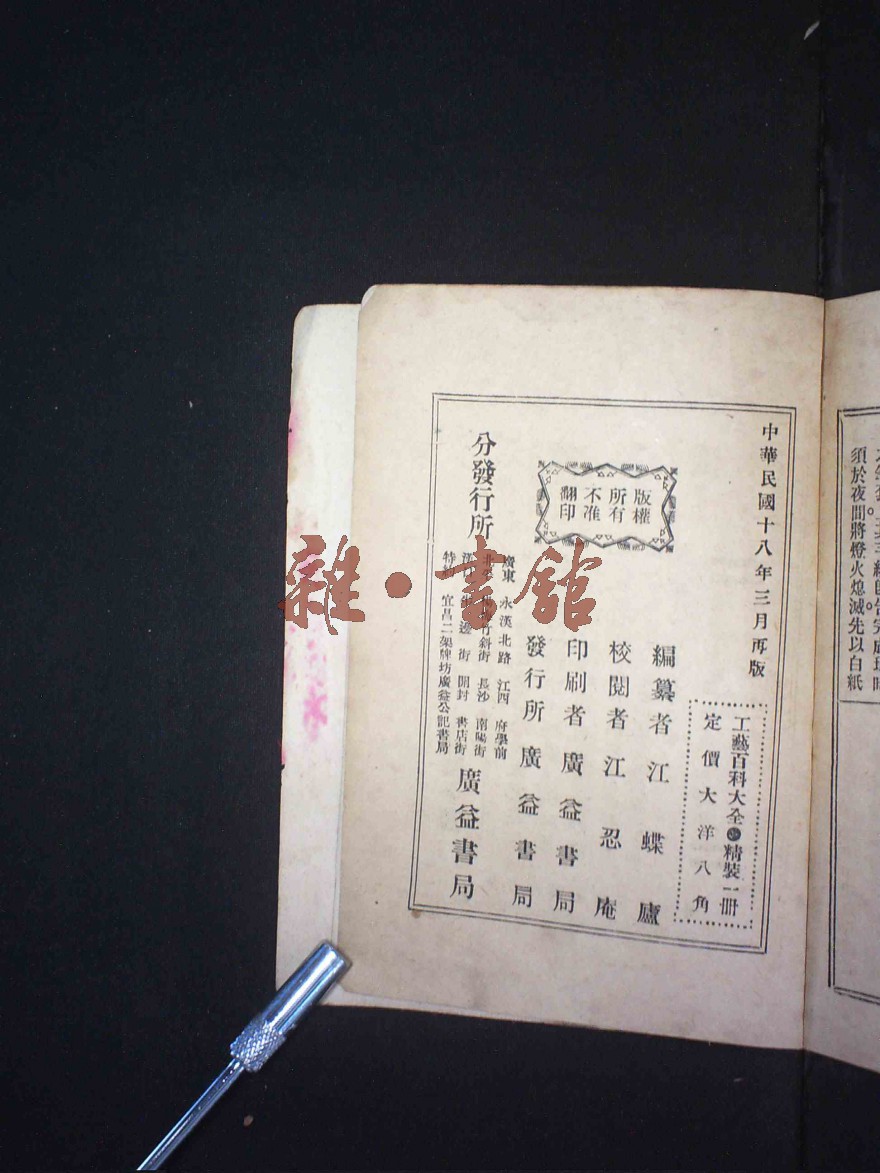 須於夜間將燈火熄滅先以白紙
中華民國十八年三月再版
工藝百科大全 精裝一冊
定價大洋八角
版權
所有
不准
翻印
編纂者 江蝶廬
校閱者 江忍庵
印刷者 廣益書局
發行所 廣益書局
分發行所
廣東 永漢北路 江西 府學前
竹斜街 長沙 南陽街
邊街 開封 書店街
宜昌二架牌坊廣益公記書局
廣益書局
雜·書館